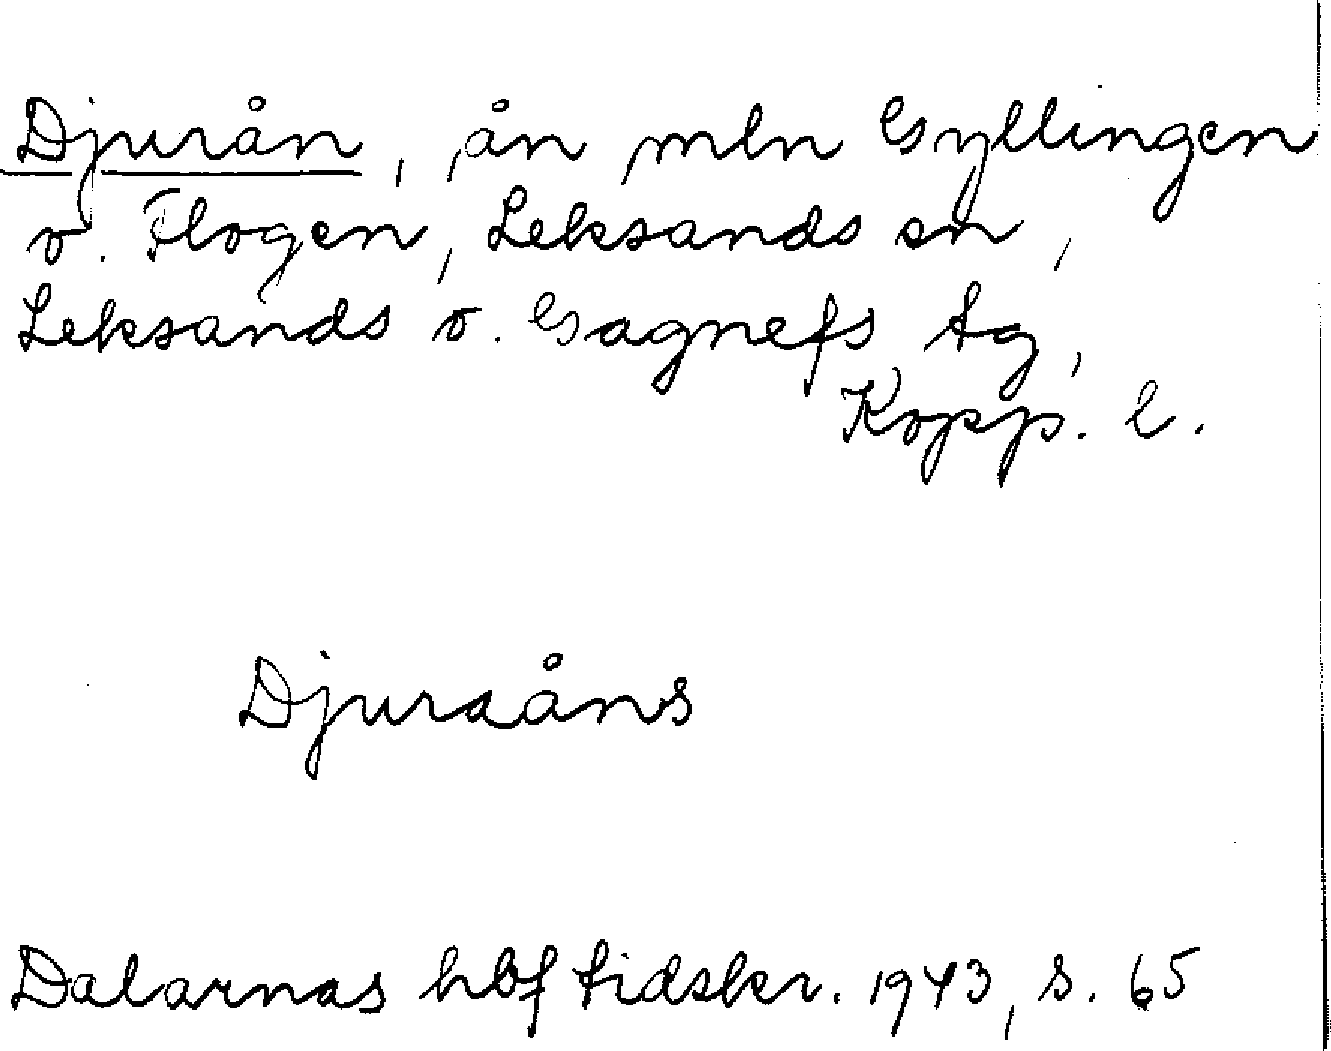 Djurån, ån mln Gyllingen
o. Flogen, Leksands sn,
Leksands o. Gagnefs tg,
Kopp. l.
Djuraåns
Dalarnas hbf tidskr. 1943, s. 65